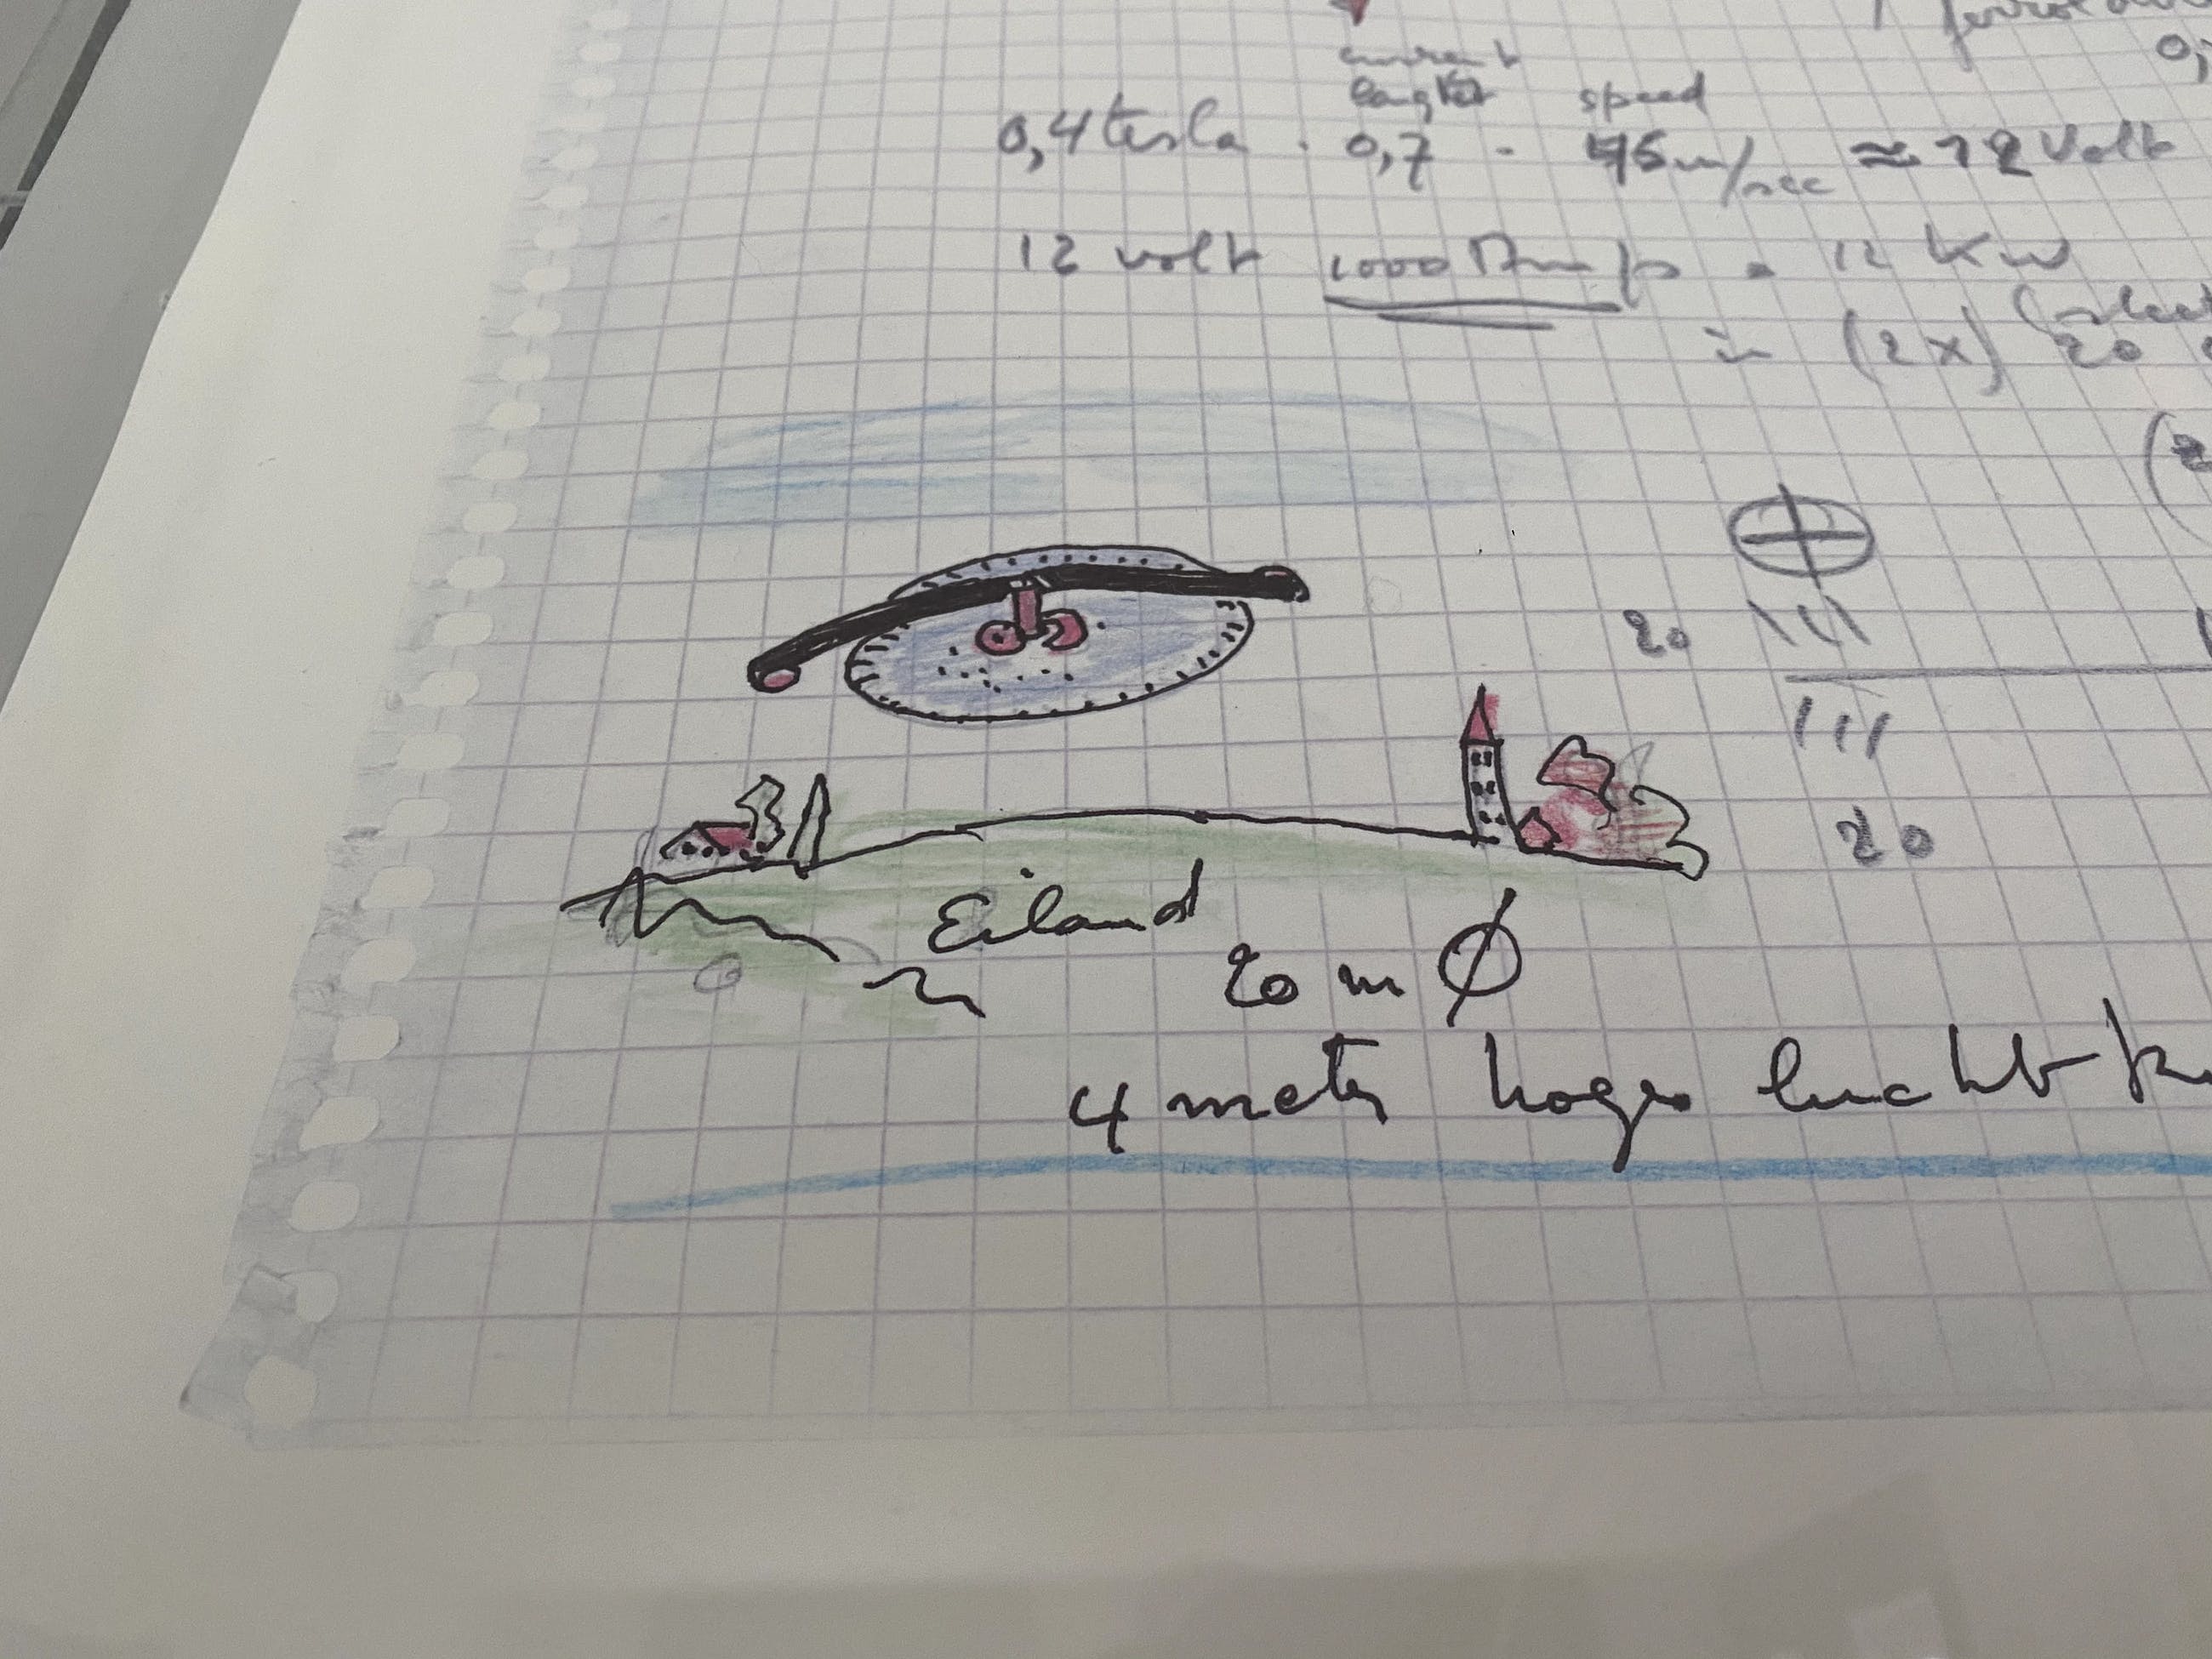 0,
current
lengte speed
0,4 tesla . 0,7 . 45 m/sec ≈ 12 Volt
12 volt 1000 Amp = 12 Kw
(2x) 20
20
20
Eiland
20 m Ø
4 meter hoge lucht